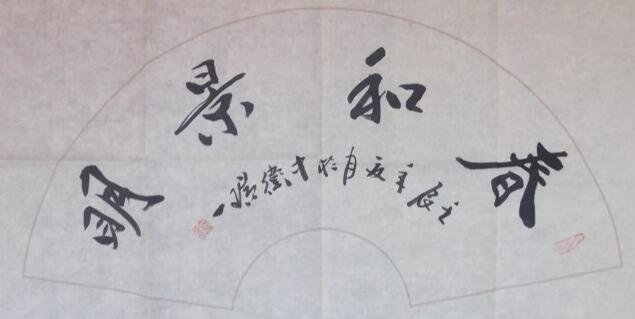 春和景明
戊辰年夏月於